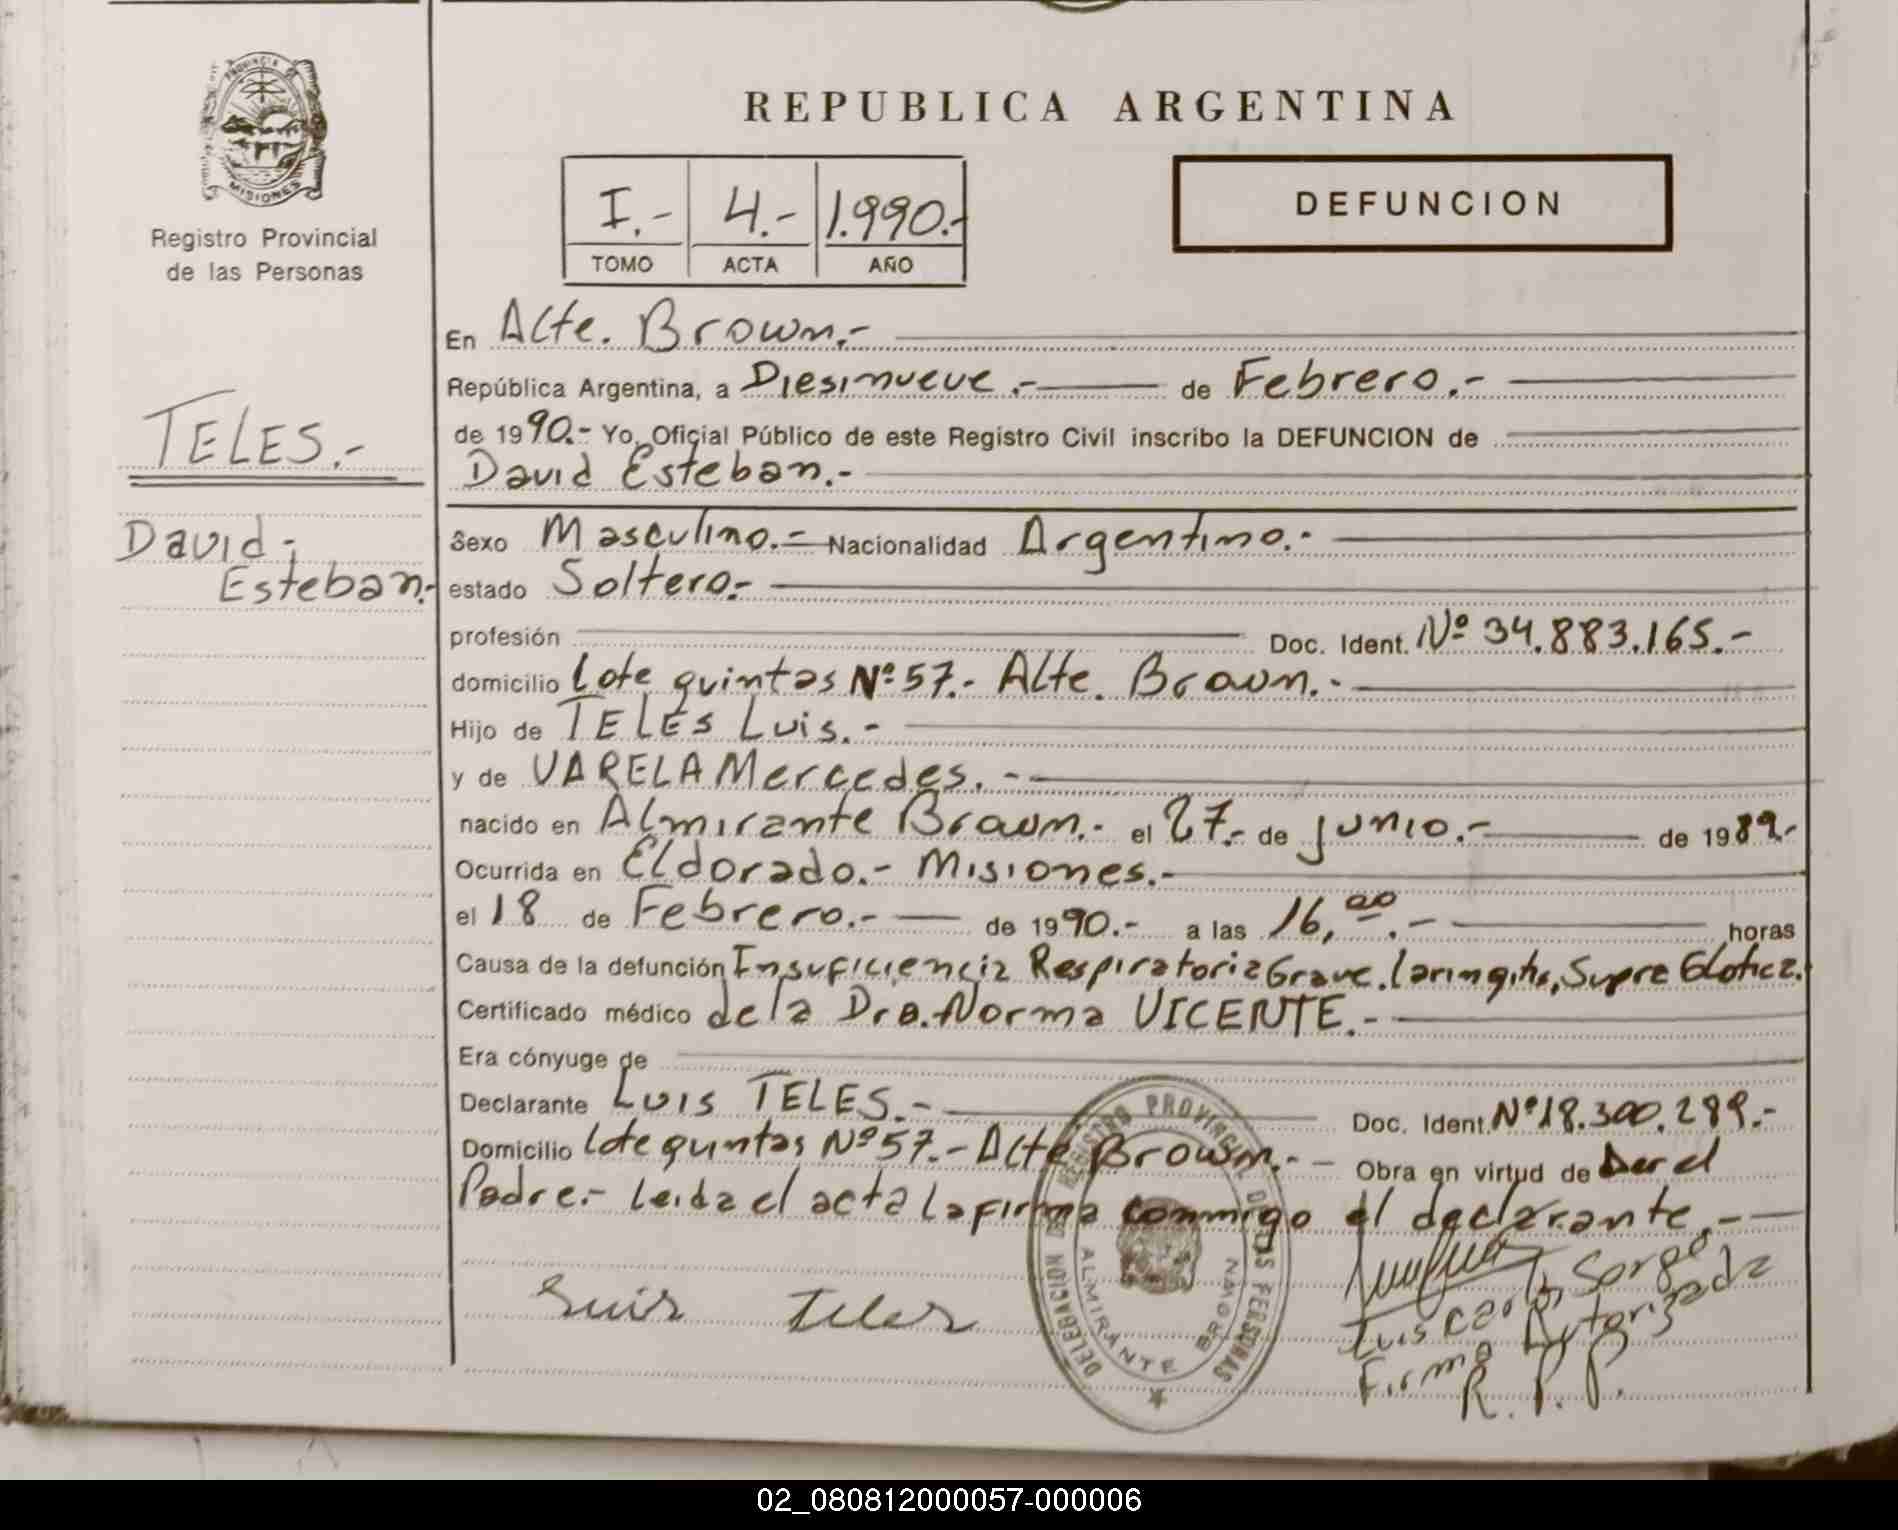 PROVINCIA DE
MISIONES
Registro Provincial
de las Personas
TELES.-
David-
Esteban.-
REPUBLICA ARGENTINA
I.- 4.- 1.990.-
TOMO ACTA AÑO
DEFUNCION
En Alte. Brown.-
República Argentina, a Diesinueve.- de Febrero.-
de 1990.- Yo, Oficial Público de este Registro Civil inscribo la DEFUNCION de
David Esteban.-
Sexo Masculino.- Nacionalidad Argentino.-
estado Soltero.-
profesión Doc. Ident. Nº 34.883.165.-
domicilio Lote quintas Nº 57.- Alte. Brown.-
Hijo de TELES Luis.-
y de VARELA Mercedes.-
nacido en Almirante Brown.- el 27.- de junio.- de 1989.-
Ocurrida en Eldorado.- Misiones.-
el 18 de Febrero.- de 1990.- a las 16,00.- horas
Causa de la defunción Insuficiencia Respiratoria Grave. laringitis, Supra Glotica.
Certificado médico de la Dra. Norma VICENTE.-
Era cónyuge de
Declarante Luis TELES.- Doc. Ident. Nº 18.300.289.-
Domicilio lote quintas Nº 57.- Alte Brown.- Obra en virtud de ser el
Padre.- leida el acta la firma conmigo el declarante.-
Luis Teles
DELEGACION DEL REGISTRO PROVINCIAL DE LAS PERSONAS
ALMIRANTE BROWN
Luis Carlos Sorge
Firma Autorizada
R. P. P.
02_080812000057-000006